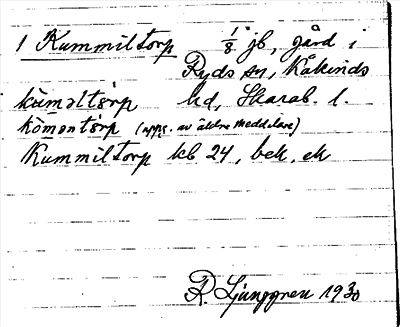 1 Kummiltorp 1/8 jb, gård i
Ryds sn, Kåkinds
kùməltòrp hd, Skarab. l.
köməntòrp (uppg. av äldre meddelare)
Kummiltorp kb 24, bek. ek
R. Ljunggren 1930